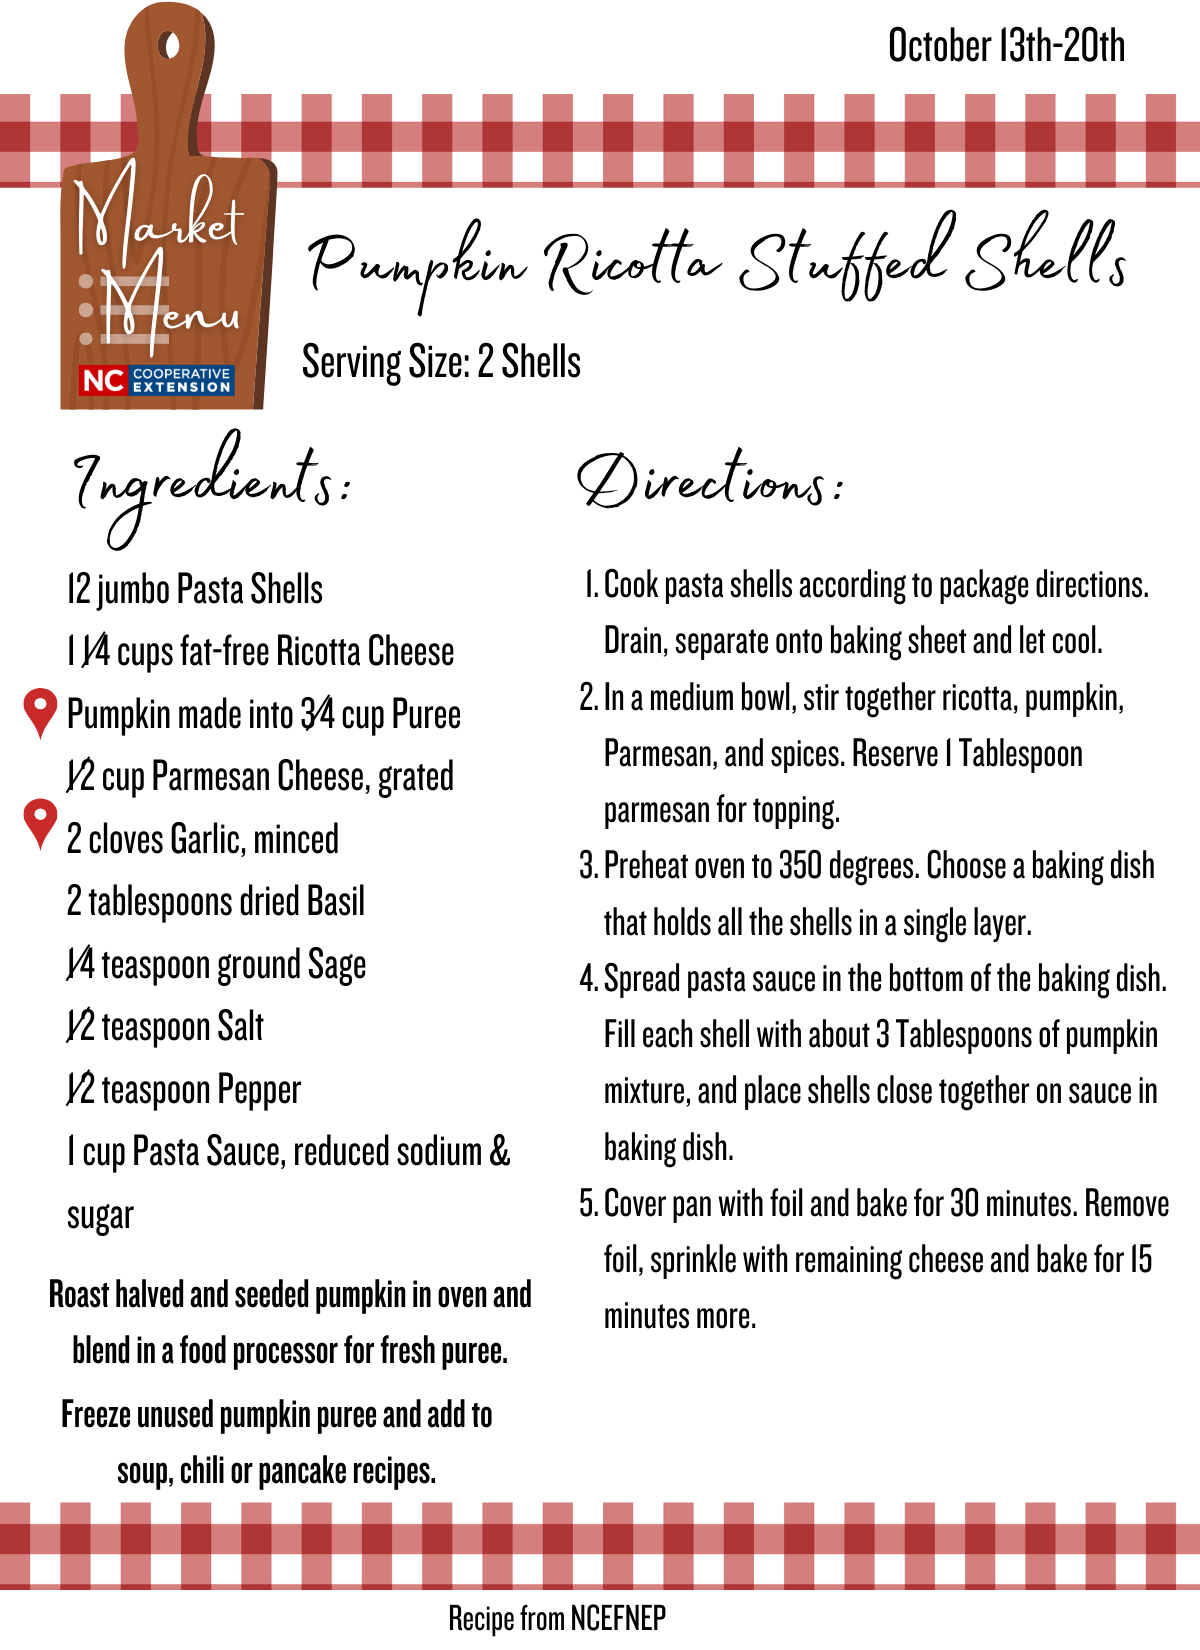 October 13th-20th
Market
Menu
NC COOPERATIVE
EXTENSION
Pumpkin Ricotta Stuffed Shells
Serving Size: 2 Shells
Ingredients:
12 jumbo Pasta Shells
1 1/4 cups fat-free Ricotta Cheese
Pumpkin made into 3/4 cup Puree
1/2 cup Parmesan Cheese, grated
2 cloves Garlic, minced
2 tablespoons dried Basil
1/4 teaspoon ground Sage
1/2 teaspoon Salt
1/2 teaspoon Pepper
1 cup Pasta Sauce, reduced sodium &
sugar
Roast halved and seeded pumpkin in oven and
blend in a food processor for fresh puree.
Freeze unused pumpkin puree and add to
soup, chili or pancake recipes.
Directions:
1. Cook pasta shells according to package directions.
Drain, separate onto baking sheet and let cool.
2. In a medium bowl, stir together ricotta, pumpkin,
Parmesan, and spices. Reserve 1 Tablespoon
parmesan for topping.
3. Preheat oven to 350 degrees. Choose a baking dish
that holds all the shells in a single layer.
4. Spread pasta sauce in the bottom of the baking dish.
Fill each shell with about 3 Tablespoons of pumpkin
mixture, and place shells close together on sauce in
baking dish.
5. Cover pan with foil and bake for 30 minutes. Remove
foil, sprinkle with remaining cheese and bake for 15
minutes more.
Recipe from NCEFNEP